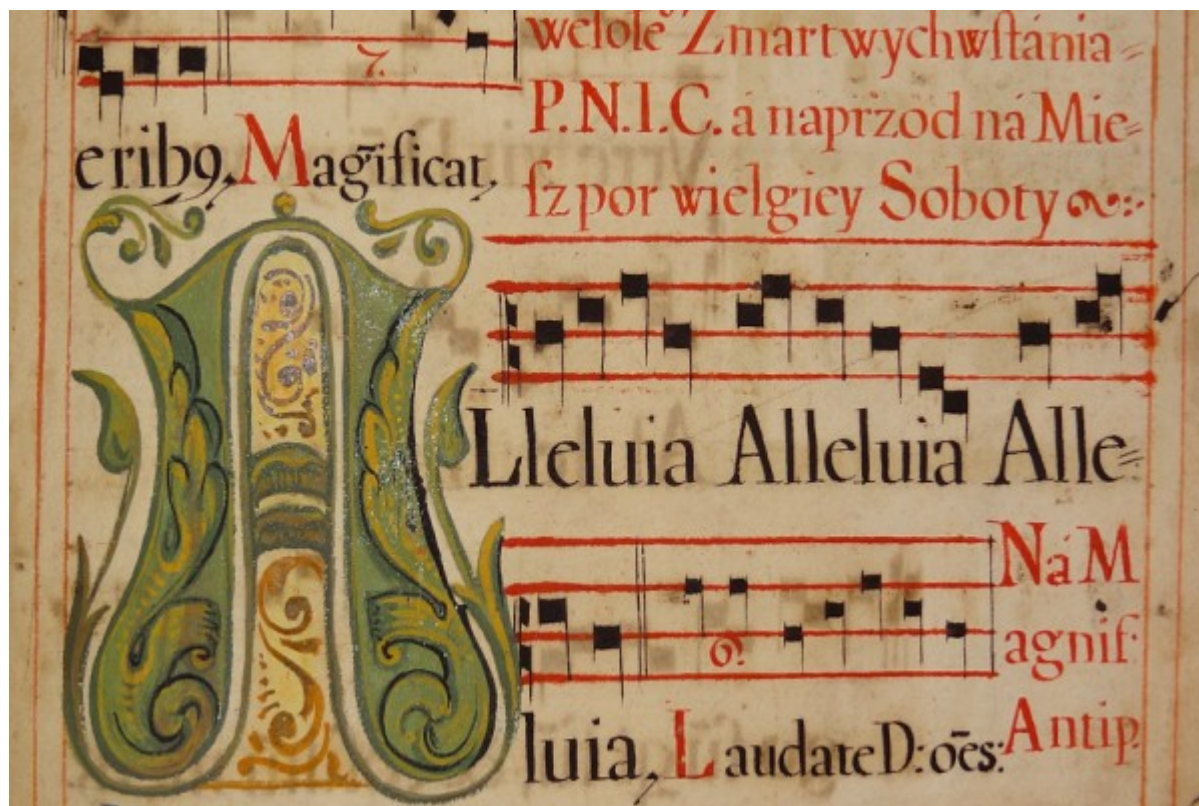 7.
wełole Zmartwychwſtánia=
P.N.I.C. á naprzod ná Mie=
ſzpor wielgiey Soboty
erib9, Magñificat,
Lleluia Alleluia Alle=
6.
Ná M
agnif:
Antip.
luia, Laudate D: oēs: